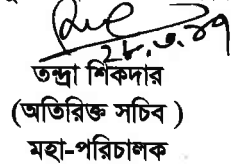 ২৮.৩.১৭
তন্দ্রা শিকদার
(অতিরিক্ত সচিব )
মহা-পরিচালক